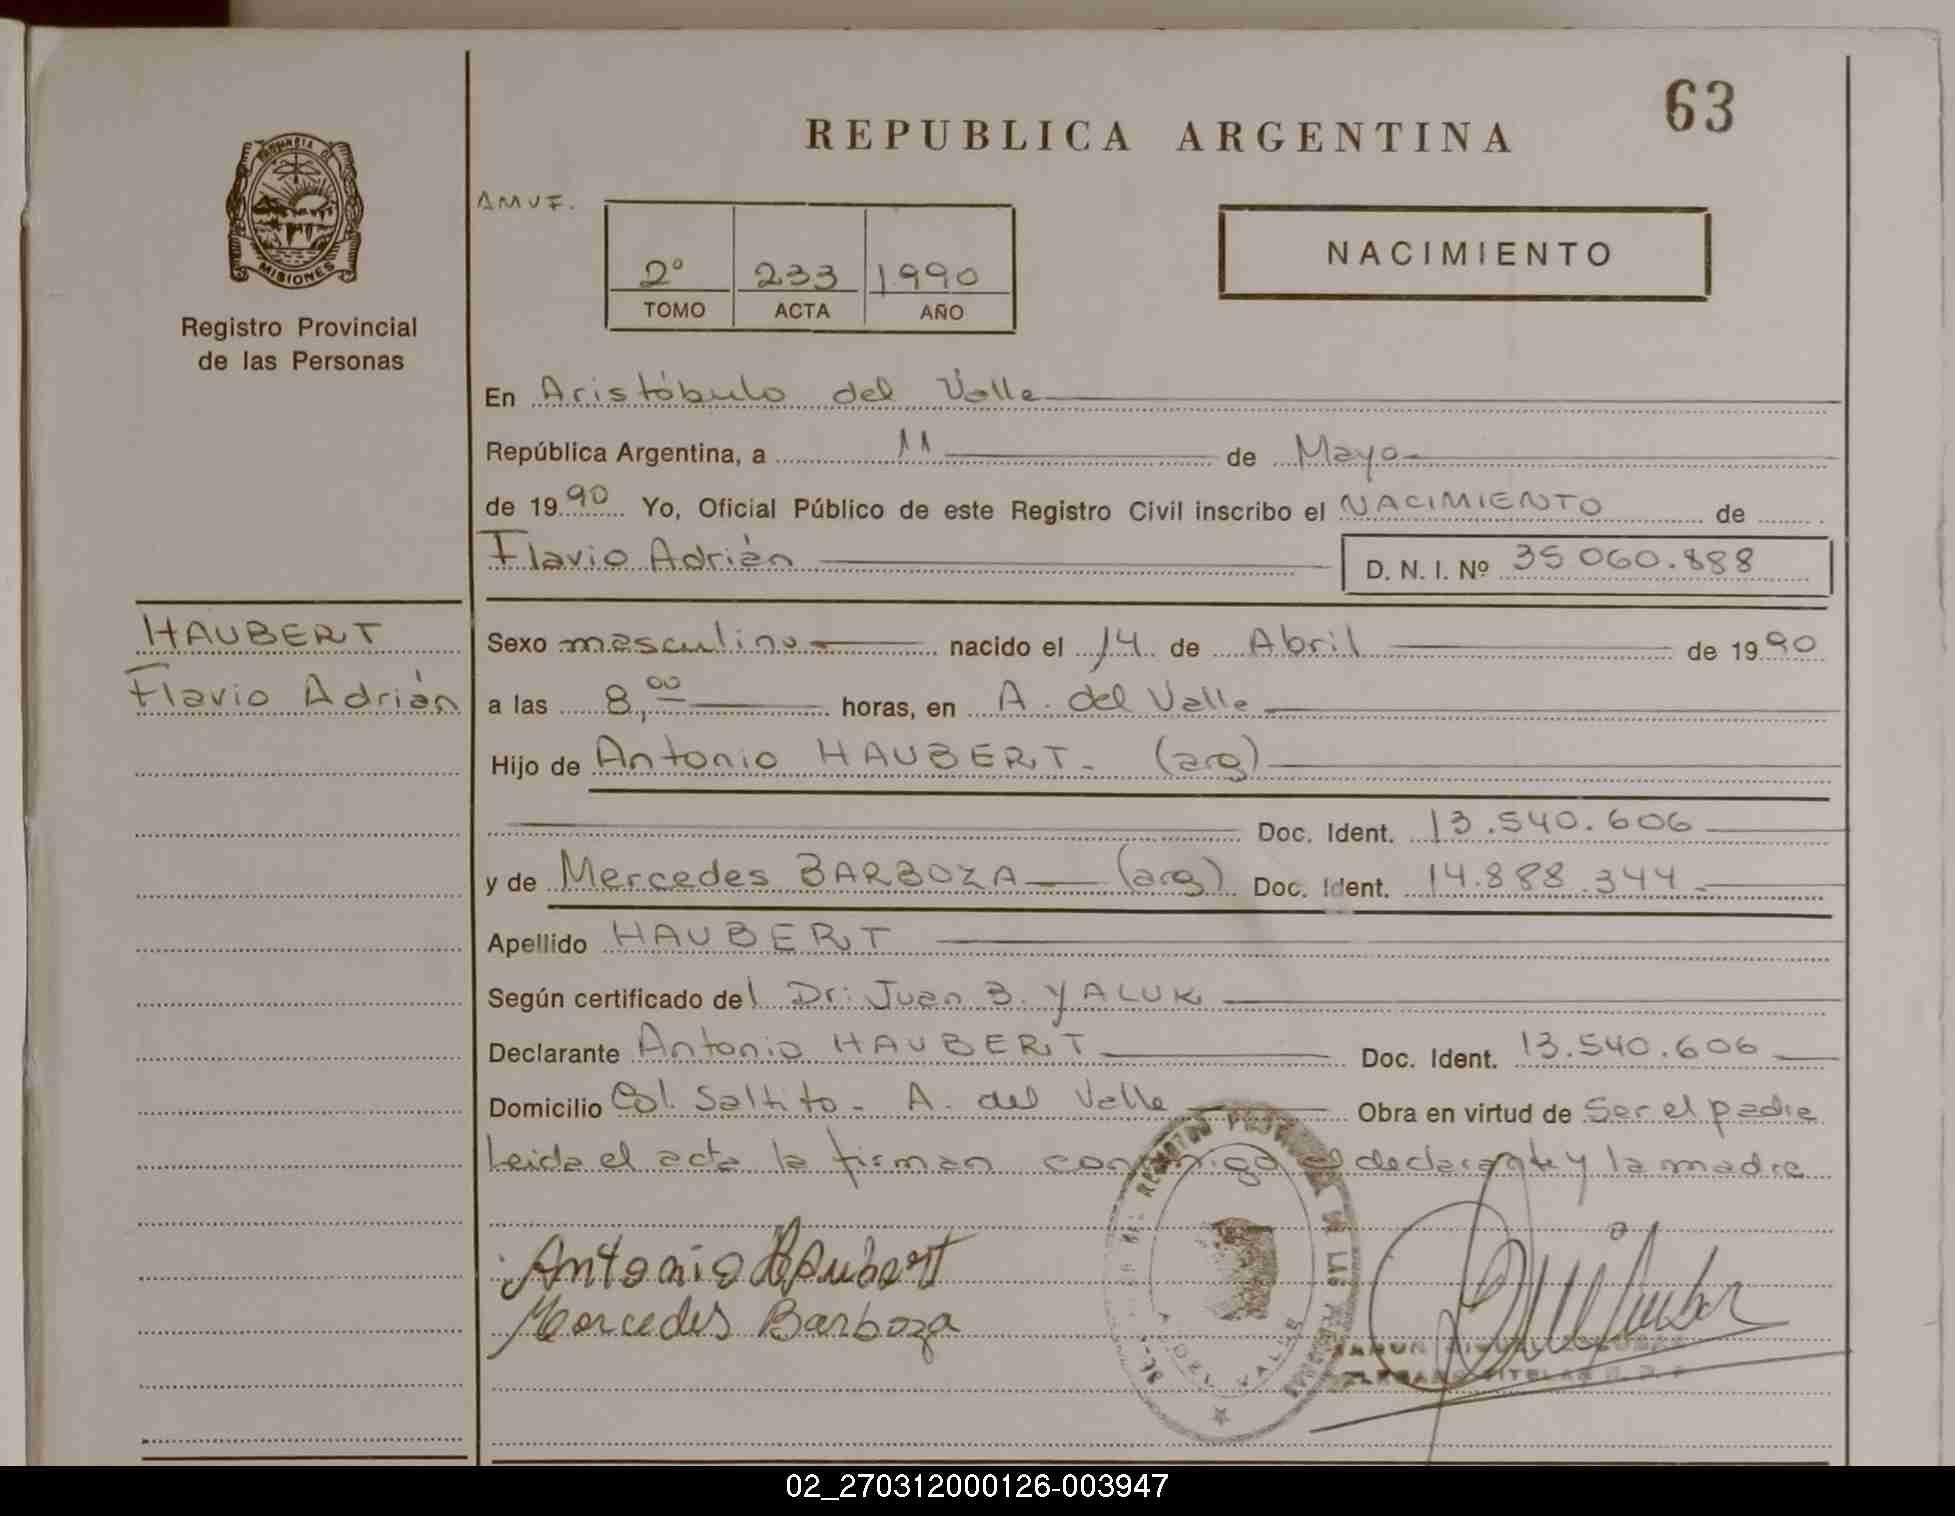 63
REPUBLICA ARGENTINA
PROVINCIA DE
MISIONES
Registro Provincial
de las Personas
AMUF.
2º 233 1990
TOMO ACTA AÑO
NACIMIENTO
En Aristóbulo del Valle
República Argentina, a 11 de Mayo
de 1990 Yo, Oficial Público de este Registro Civil inscribo el NACIMIENTO de
Flavio Adrián D. N. I. Nº 35 060.888
HAUBERT
Flavio Adrián
Sexo masculino nacido el 14 de Abril de 1990
a las 8,00 horas, en A. del Valle
Hijo de Antonio HAUBERT - (arg)
Doc. Ident. 13.540.606
y de Mercedes BARBOZA (arg) Doc. Ident. 14.888.344
Apellido HAUBERT
Según certificado del Dr: Juan B. YALUK
Declarante Antonio HAUBERT Doc. Ident. 13.540.606
Domicilio Col. Saltito - A. del Valle Obra en virtud de Ser el padre
Leida el acta la firman conmigo el declarante y la madre
Antonio Haubert
Mercedes Barboza
A. DEL VALLE
02_270312000126-003947